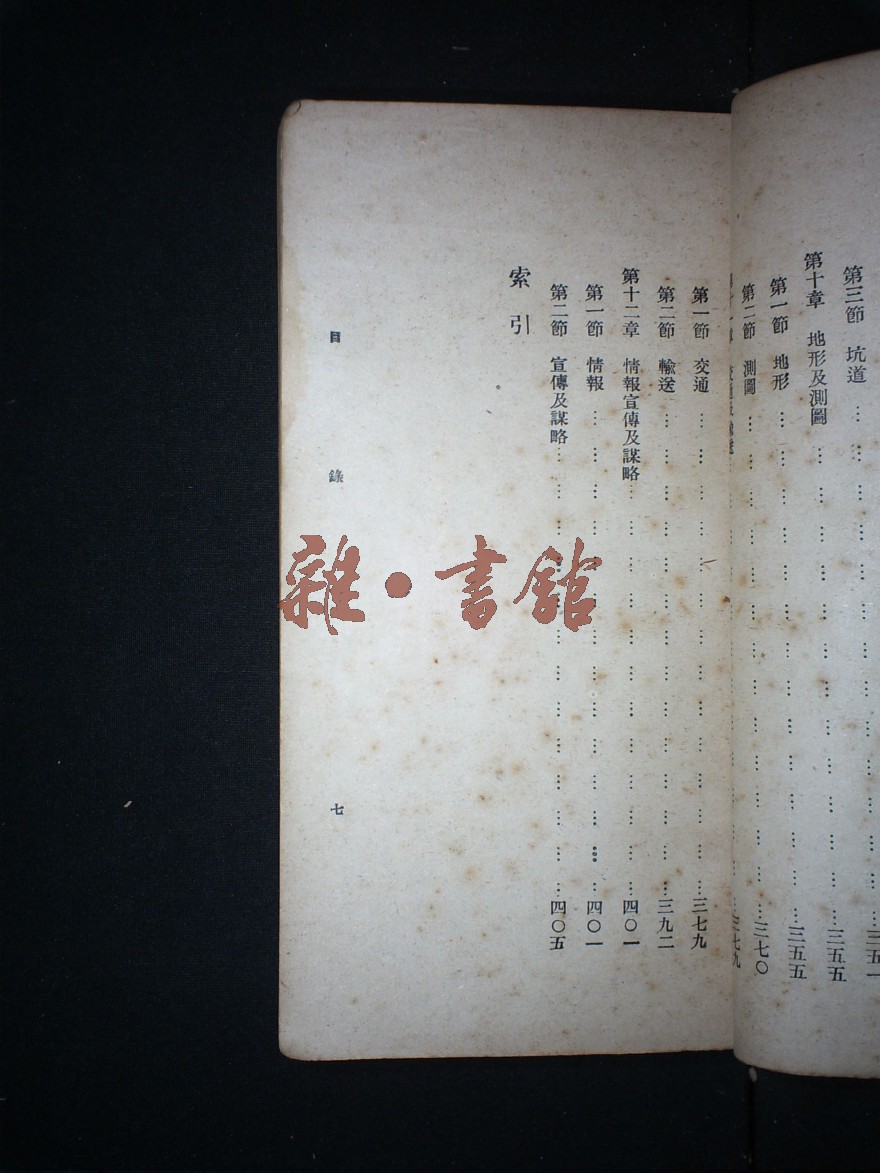 第三節　坑道 … … … … … … … … 三五一
第十章　地形及測圖 … … … … … … … 三五五
第一節　地形 … … … … … … … … 三五五
第二節　測圖 … … … … … … … … 三七〇
章　交通及輸送 … … … … … … … 三七九
第一節　交通 … … … … … … … … 三七九
第二節　輸送 … … … … … … … … 三九二
第十二章　情報宣傳及謀略 … … … … … … … 四〇一
第一節　情報 … … … … … … … … 四〇一
第二節　宣傳及謀略 … … … … … … … 四〇五
索引
目錄　七
雜·書館